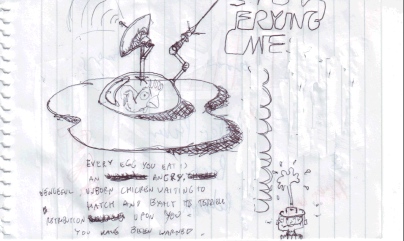 FRYING
ME!
EVERY EGG YOU EAT IS
AN ANGRY,
VENGEFUL, UNBORN CHICKEN WAITING TO
HATCH AND EXACT ITS TERRIBLE
RETRIBUTION UPON YOU.
YOU HAVE BEEN WARNED.